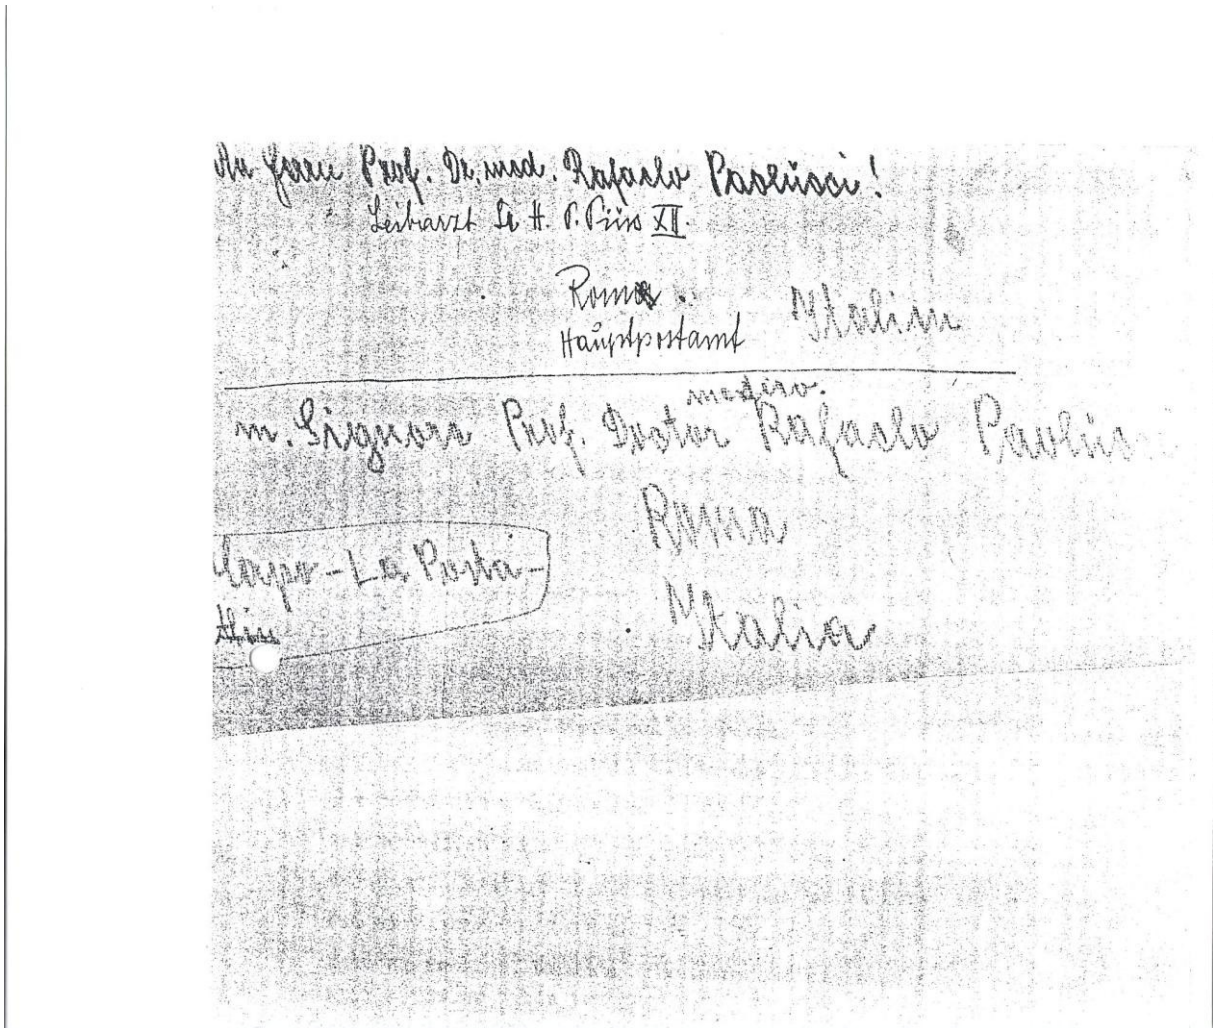 An Herrn Prof. Dr. med. Rafaelo Paolucci!
Leibarzt Sr H. P. Pius XII.
Roma
Hauptpostamt Italien
medico.
m. Signore Prof. Doctor Rafaelo Paoluc
Roma
Corpo - La Posta -
Italia